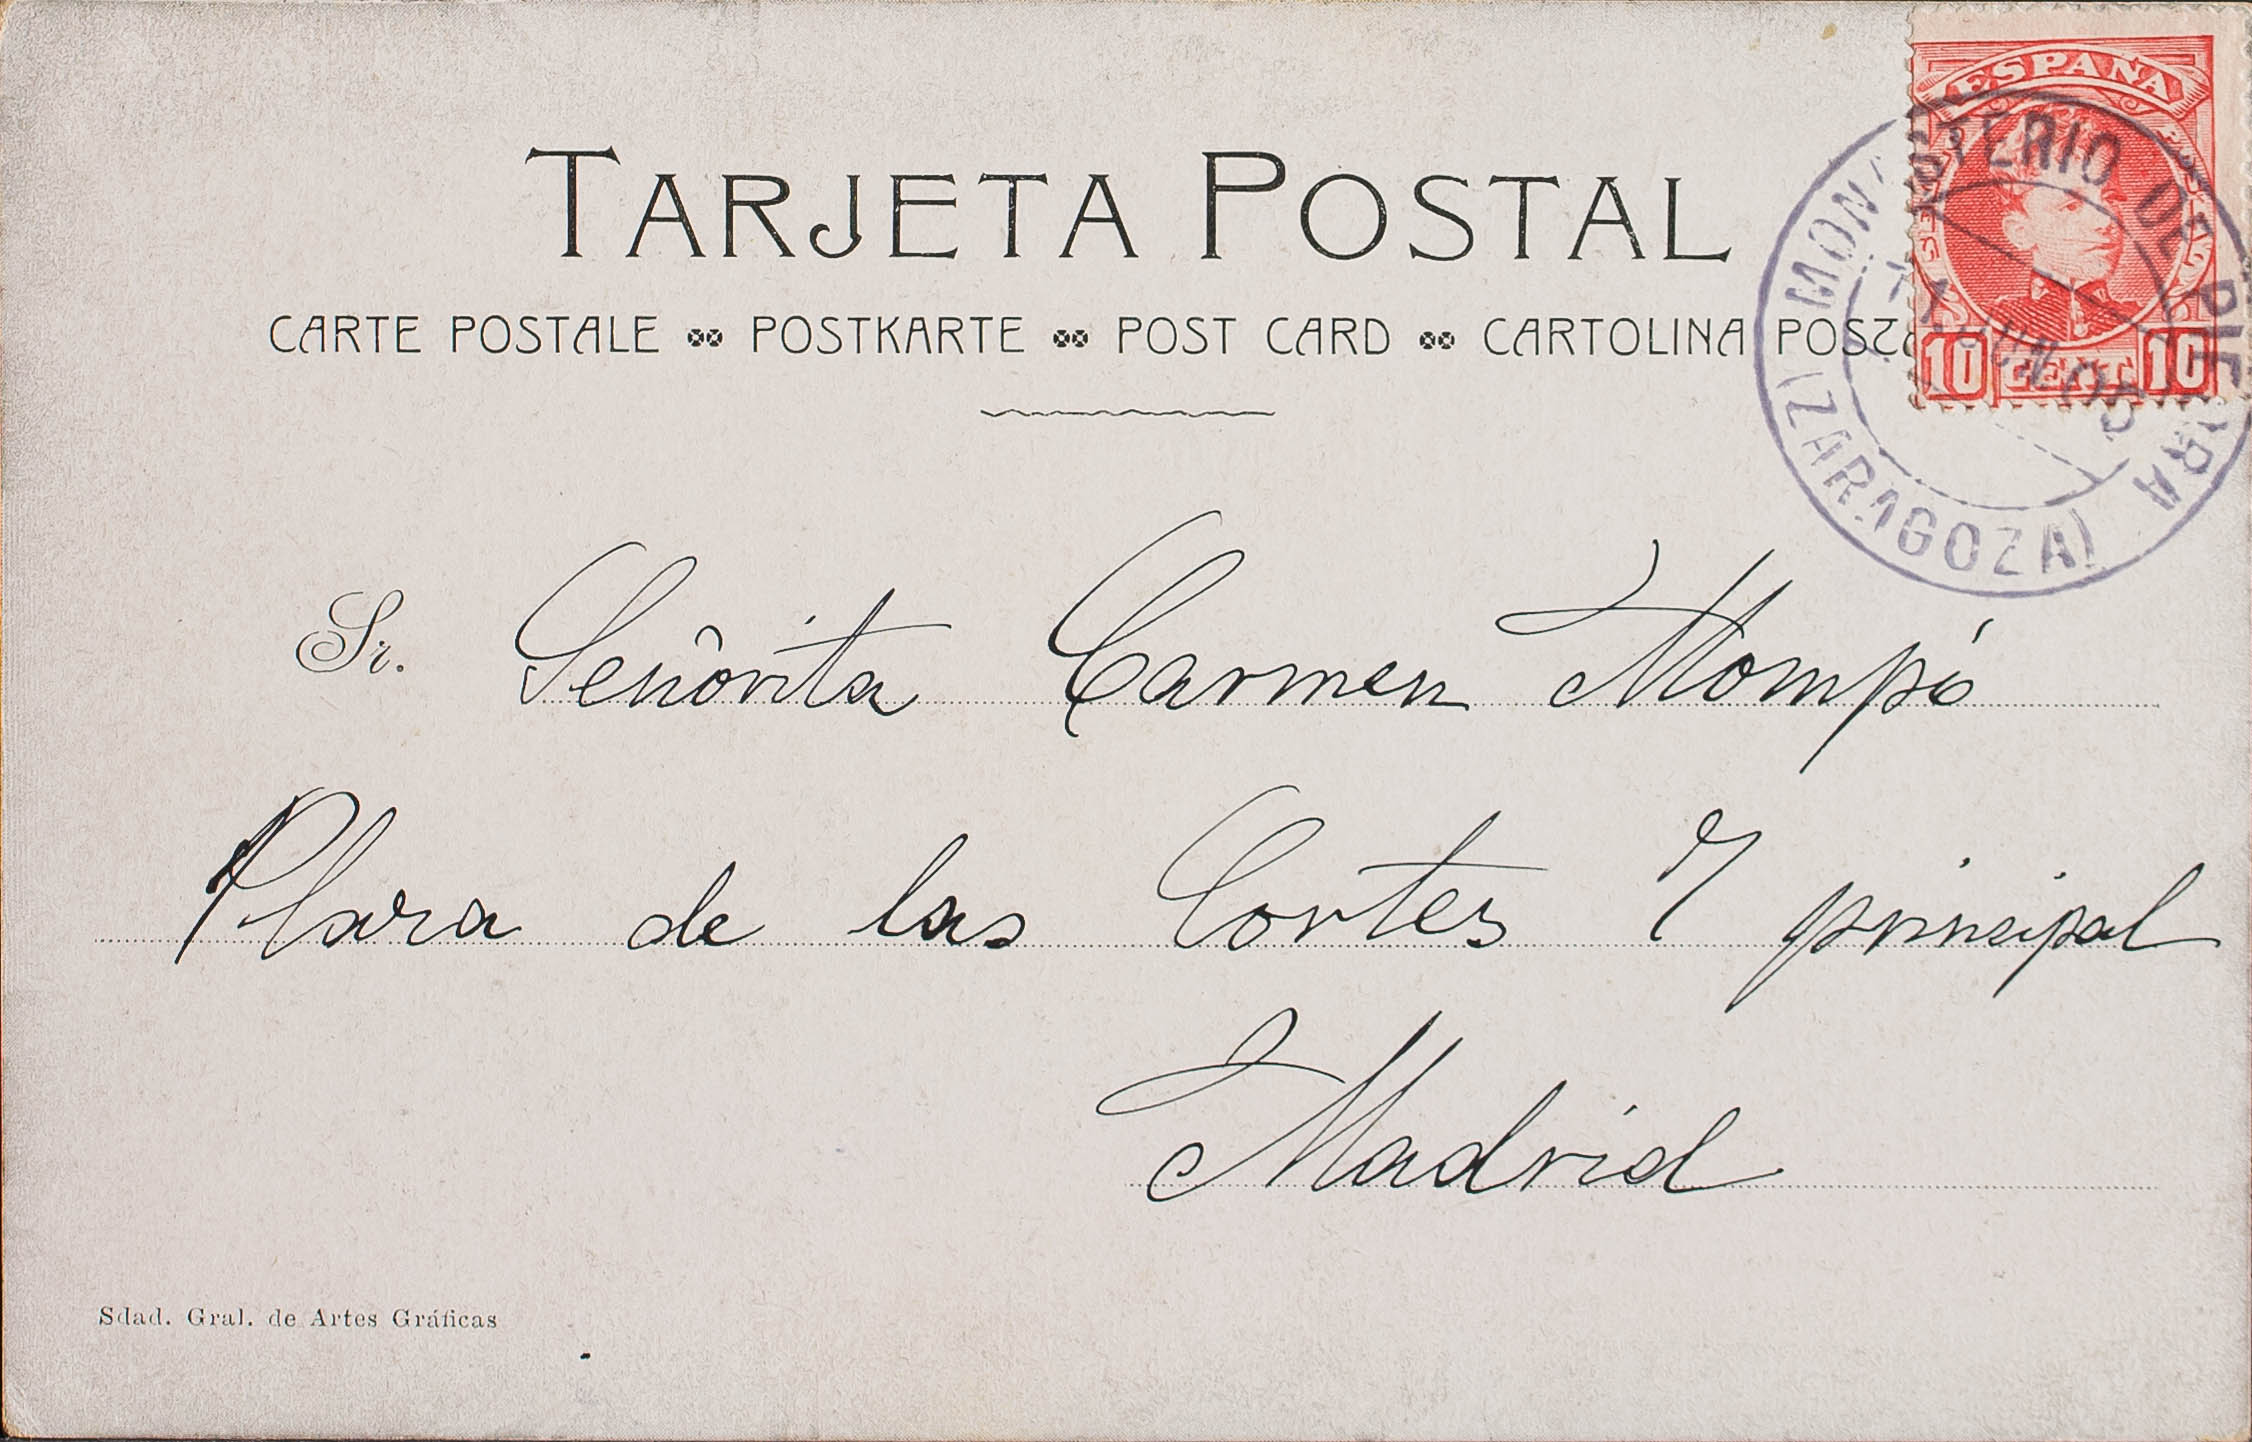 ESPAÑA
TARJETA POSTAL
MONASTERIO DE PIEDRA
CARTE POSTALE POSTKARTE POST CARD CARTOLINA POSTA
10 CENT 10
(ZARAGOZA)
Sr. Señorita Carmen Mompó
Plaza de las Cortes 7 principal
Madrid
Sdad. Gral. de Artes Gráficas